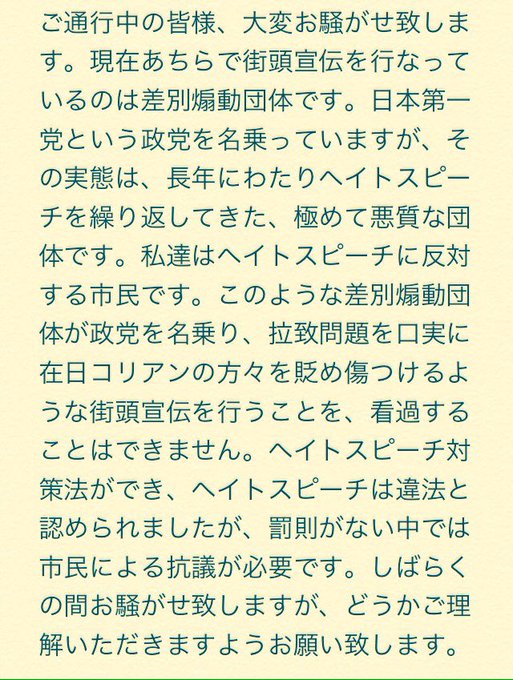 ご通行中の皆様、大変お騒がせ致しま
す。現在あちらで街頭宣伝を行なって
いるのは差別煽動団体です。日本第一
党という政党を名乗っていますが、そ
の実態は、長年にわたりヘイトスピー
チを繰り返してきた、極めて悪質な団
体です。私達はヘイトスピーチに反対
する市民です。このような差別煽動団
体が政党を名乗り、拉致問題を口実に
在日コリアンの方々を貶め傷つけるよ
うな街頭宣伝を行うことを、看過する
ことはできません。ヘイトスピーチ対
策法ができ、ヘイトスピーチは違法と
認められましたが、罰則がない中では
市民による抗議が必要です。しばらく
の間お騒がせ致しますが、どうかご理
解いただきますようお願い致します。